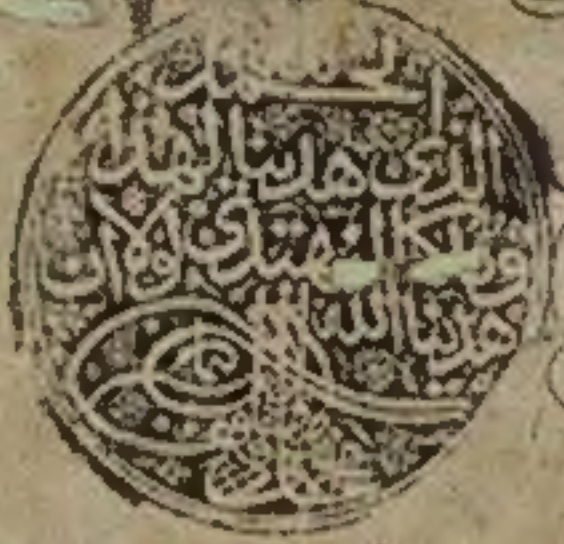 الحمد
الذي هدينا لهذا
وما كنا لنهتدي لولا ان
هدينا الله